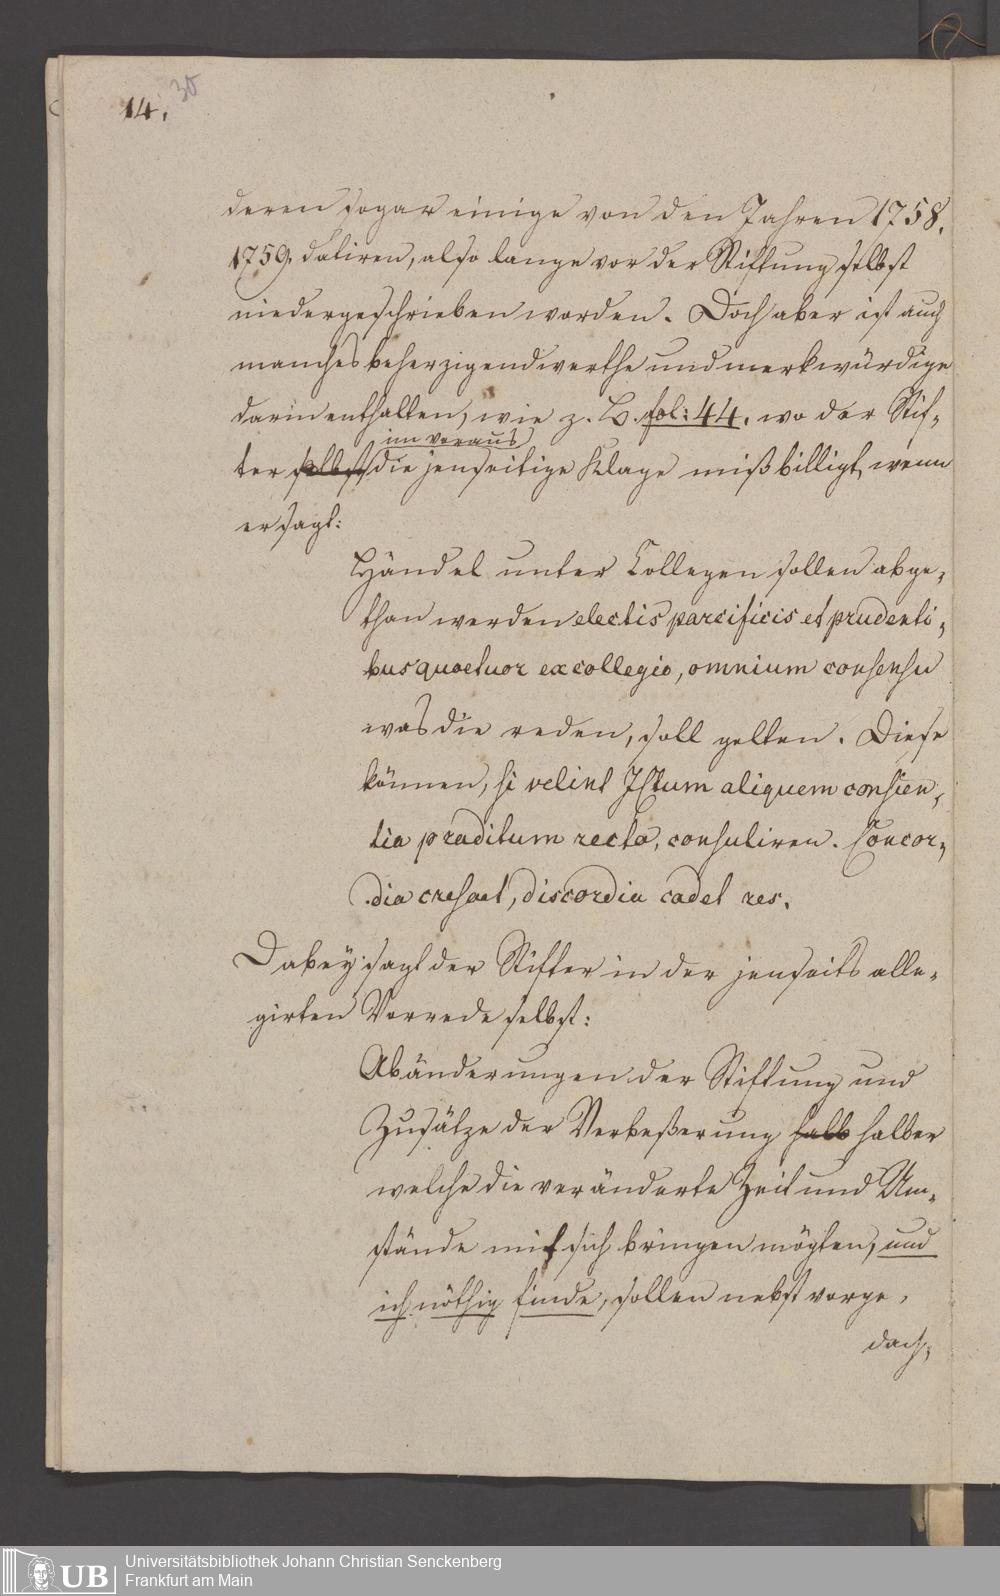 14.
30
deren sogar einige von den Jahren 1758.
1759. datiren, also lange vor der Stiftung selbst
niedergeschrieben worden. Doch aber ist auch
manches beherzigendwerthe und merkwürdige
darin enthalten, wie z. B. fol: 44. wo der Stif-
im voraus
ter selbst die jenseitige Klage mißbilligt, wenn
er sagt:
Händel unter Collegen sollen abge-
than werden electis pacificis et prudenti-
bus quatuor ex collegio, omnium consensu
was die reden, soll gelten. Diese
können, si velint JCtum aliquem conscien-
tia praditum recta, consuliren. Concor-
dia crescet, discordia cadet res.
Dabey sagt der Stifter in der jenseits alle-
girten Vorrede selbst:
Abänderungen der Stiftung und
Zusätze der Verbeßerung halb halber
welche die veränderte Zeit und Um-
stände mit sich bringen mögten, und
ich nöthig finde, sollen nebst vorge-
dach-
UB
Universitätsbibliothek Johann Christian Senckenberg
Frankfurt am Main